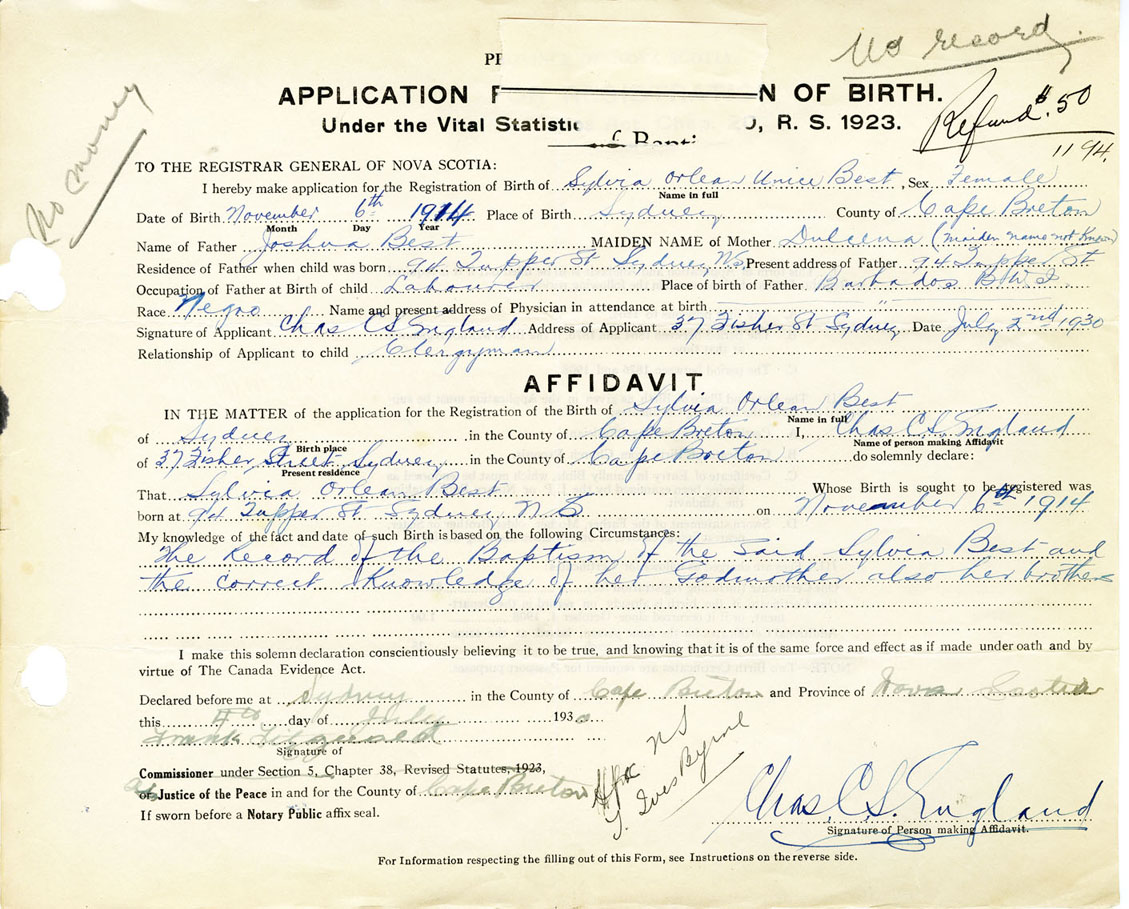 No record.
PE
APPLICATION F N OF BIRTH.
Under the Vital Statistic , R. S. 1923.
Refund $.50
1194.
No money
TO THE REGISTRAR GENERAL OF NOVA SCOTIA:
I hereby make application for the Registration of Birth of Sylvia Orlean Unice Best, Sex Female
Name in full
Date of Birth November 6th 1914 Place of Birth Sydney County of Cape Breton
Month Day Year
Name of Father Joshua Best MAIDEN NAME of Mother Dulcena (maiden name not known)
Residence of Father when child was born 94 Tupper St Sydney NS, Present address of Father 94 Tupper St
Occupation of Father at Birth of child Labourer Place of birth of Father Barbados B.W.I.
Race Negro Name and present address of Physician in attendance at birth
Signature of Applicant Chas C S England Address of Applicant 37 Fisher St Sydney Date July 2nd 1930
Relationship of Applicant to child Clergyman
AFFIDAVIT
IN THE MATTER of the application for the Registration of the Birth of Sylvia Orlean Best
Name in full
of Sydney in the County of Cape Breton I, Chas. C. S. England
Birth place Name of person making Affidavit
of 37 Fisher Street Sydney in the County of Cape Breton do solemnly declare:
Present residence
That Sylvia Orlean Best Whose Birth is sought to be registered was
born at 94 Tupper St Sydney N.S on November 6th 1914
My knowledge of the fact and date of such Birth is based on the following Circumstances:
The Record of the Baptism of the said Sylvia Best and
the correct knowledge of her Godmother also her brothers
I make this solemn declaration conscientiously believing it to be true, and knowing that it is of the same force and effect as if made under oath and by
virtue of The Canada Evidence Act.
Declared before me at Sydney in the County of Cape Breton and Province of Nova Scotia
this 4th day of July 1930
Frank Fitzgerald
Signature of
Commissioner under Section 5, Chapter 38, Revised Statutes, 1923,
or Justice of the Peace in and for the County of Cape Breton
If sworn before a Notary Public affix seal.
Hfx NS
Ives Byrne
Chas. C. S. England
Signature of Person making Affidavit.
For Information respecting the filling out of this Form, see Instructions on the reverse side.